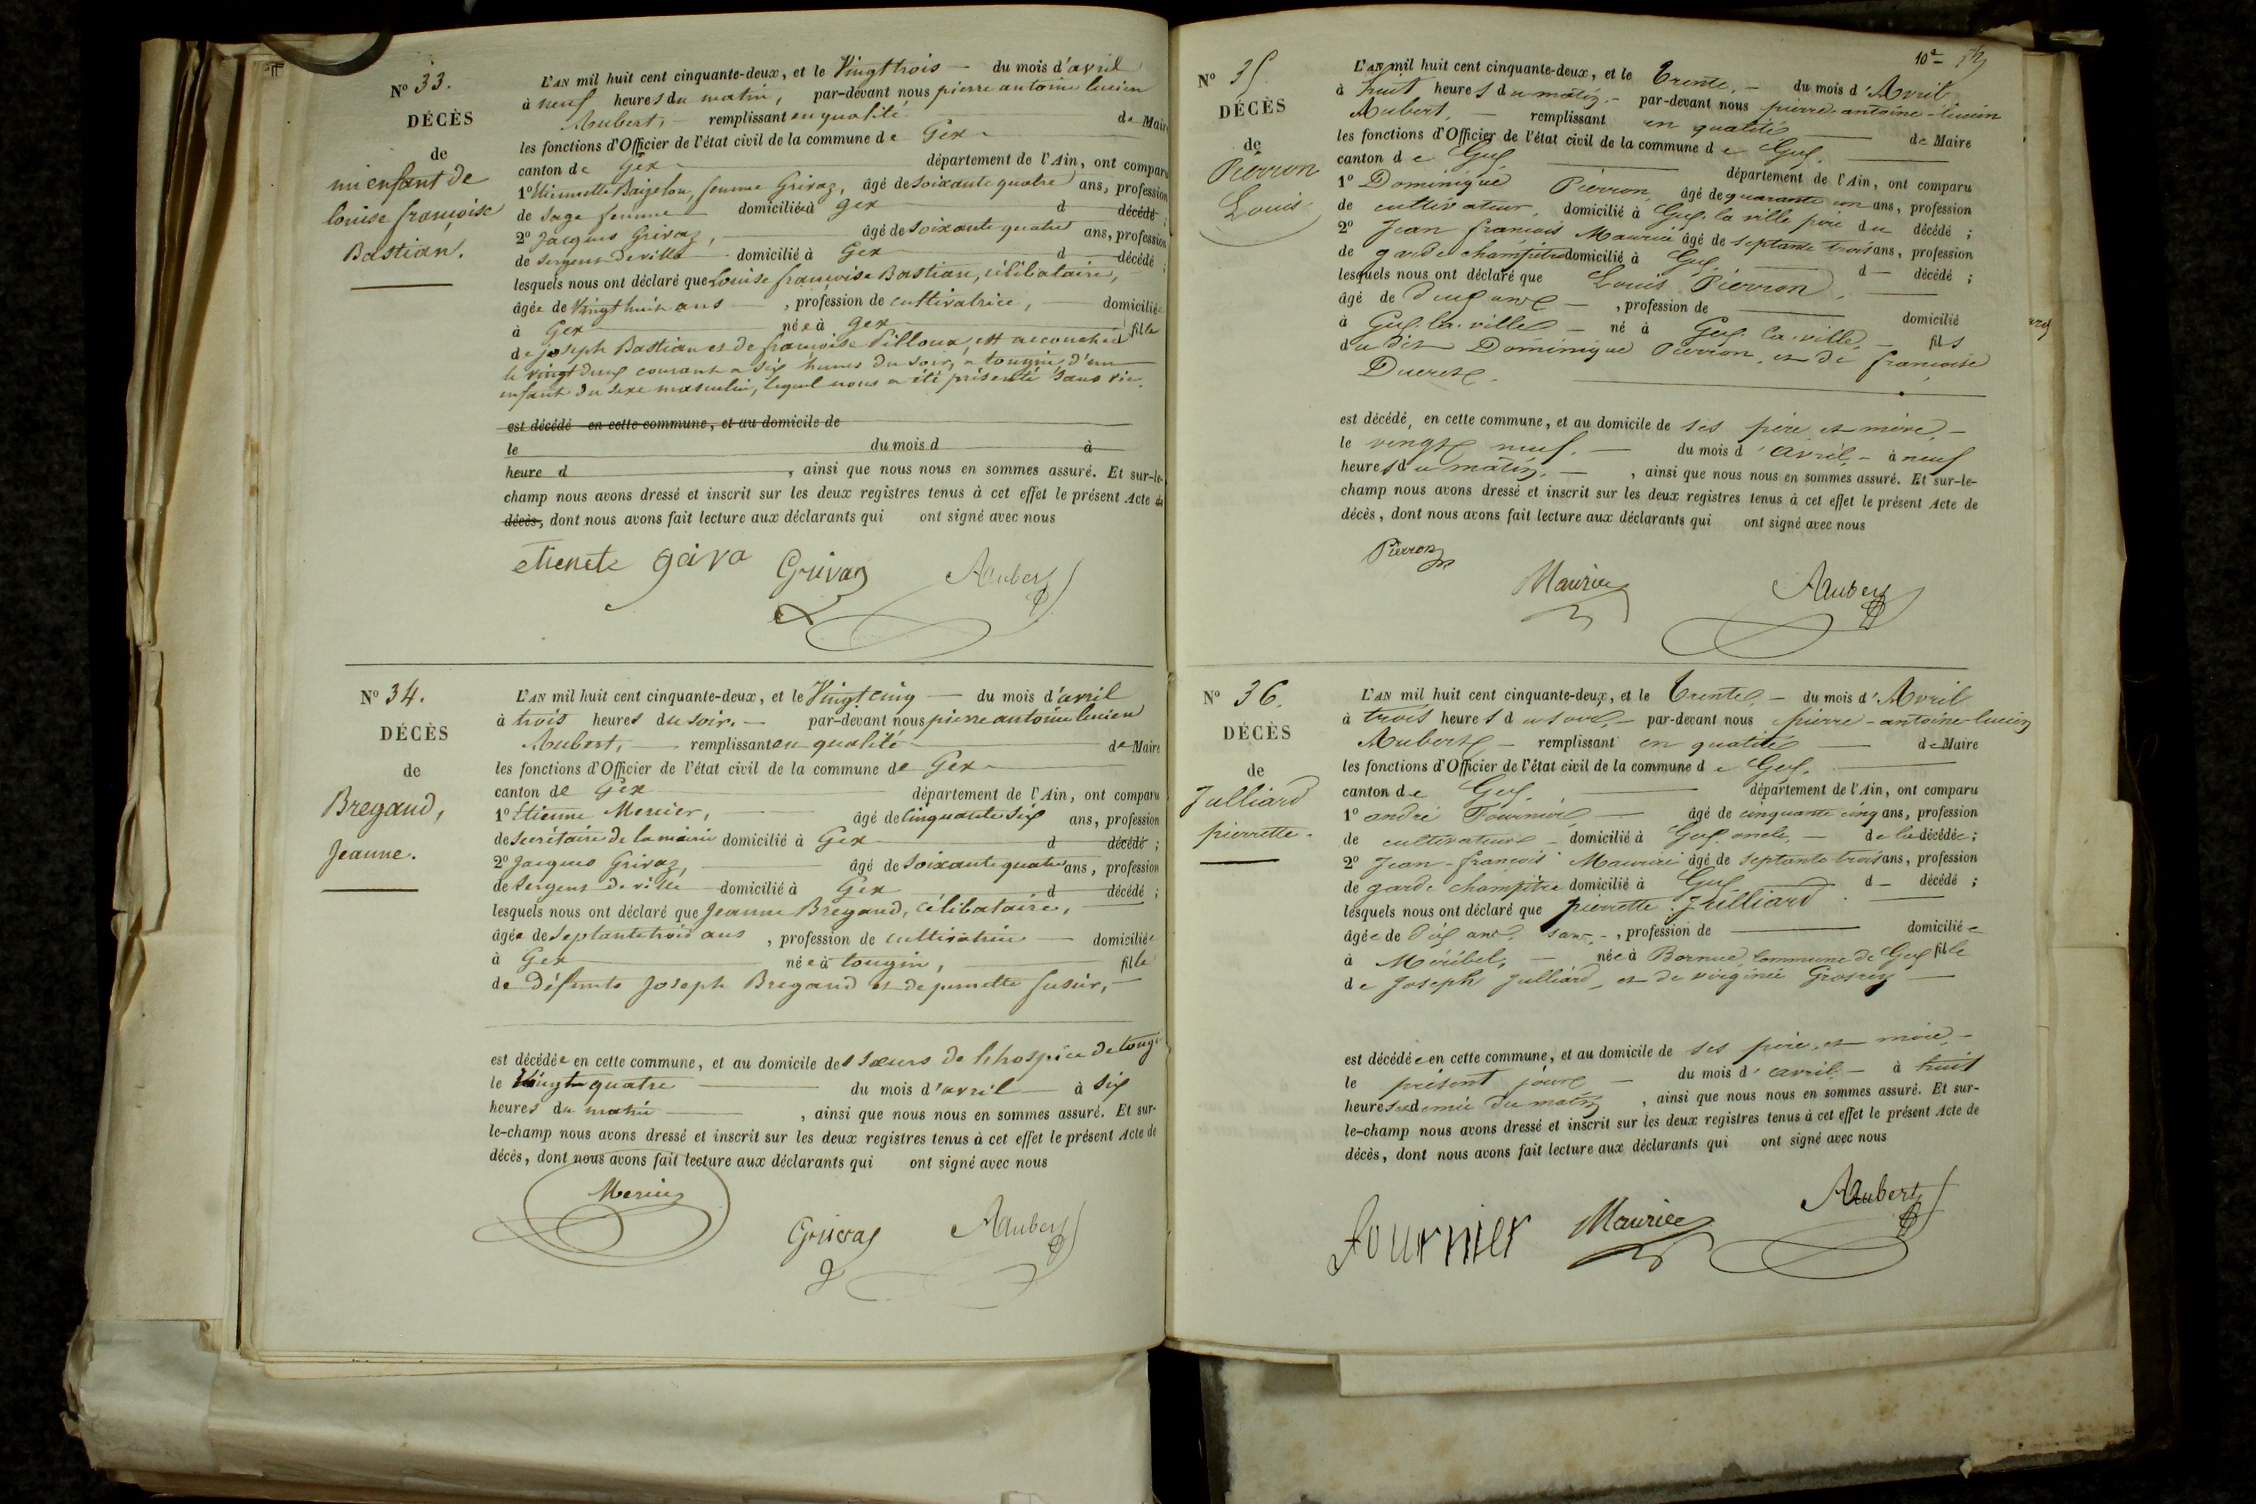 N° 33.
DÉCÈS
de
un enfant de
louise françoise
Bastian.
L'AN mil huit cent cinquante-deux, et le Vingt trois — du mois d'avril
à neuf heures du matin, par-devant nous pierre antoine lucien
Aubert, — remplissant en qualité de Maire
les fonctions d'Officier de l'état civil de la commune de Gex
canton de Gex département de l'Ain, ont comparu
1° Etiennette Baizelon, femme Grivaz, âgé de soixante quatre ans, profession
de Sage femme domiciliée à gex d décédé ;
2° Jacques Grivaz, âgé de soixante quatre ans, profession
de sergent de ville domicilié à Gex d décédé ;
lesquels nous ont déclaré que Louise françoise Bastian, célibataire,
âgée de Vingt huit ans — , profession de cultivatrice, — domiciliée
à Gex née à gex fille
de joseph Bastian et de françoise Pilloux, est accouchée
le vingt deux courant a six heures du soir, a tougin d'un
enfant du sexe masculin, lequel nous a été présenté sans vie.
est décédé en cette commune, et au domicile de
le du mois d à
heure d , ainsi que nous nous en sommes assuré. Et sur-le-
champ nous avons dressé et inscrit sur les deux registres tenus à cet effet le présent Acte de
décès, dont nous avons fait lecture aux déclarants qui ont signé avec nous
etienete griva Grivaz AAubert
N° 34.
DÉCÈS
de
Bregand,
Jeanne.
L'AN mil huit cent cinquante-deux, et le Vingt cinq — du mois d'avril
à trois heures du soir. — par-devant nous pierre antoine lucien
Aubert, — remplissant en qualité de Maire
les fonctions d'Officier de l'état civil de la commune de Gex
canton de Gex département de l'Ain, ont comparu
1° Etienne Mercier, âgé de Cinquante six ans, profession
de secrétaire de la mairie domicilié à Gex d décédé ;
2° Jacques Grivaz, âgé de soixante quatre ans, profession
de Sergent de ville domicilié à Gex d décédé ;
lesquels nous ont déclaré que Jeanne Bregand, célibataire,
âgée de septante trois ans , profession de cultivatrice — domiciliée
à Gex née à tougin, fille
de défunts Joseph Bregand et de pernette
est décédée en cette commune, et au domicile des sœurs de lhospice de tougin
le Vingt quatre du mois d'avril à six
heures du matin , ainsi que nous nous en sommes assuré. Et sur-
le-champ nous avons dressé et inscrit sur les deux registres tenus à cet effet le présent Acte de
décès, dont nous avons fait lecture aux déclarants qui ont signé avec nous
Mercier Grivaz AAubert
10e
N° 35
DÉCÈS
de
Pierron
Louis.
L'AN mil huit cent cinquante-deux, et le Trente. — du mois d'Avril
à huit heures du matin. — par-devant nous pierre antoine-lucien
Aubert, — remplissant en qualité — de Maire
les fonctions d'Officier de l'état civil de la commune de Gex.
canton de Gex. département de l'Ain, ont comparu
1° Dominique Pierron, âgé de quarante un ans, profession
de cultivateur, domicilié à Gex. la ville père du décédé ;
2° Jean françois Maurice âgé de septante trois ans, profession
de garde champêtre domicilié à Gex. d — décédé ;
lesquels nous ont déclaré que Louis Pierron.
âgé de deux ans — , profession de domicilié
à Gex. la. ville — né à Gex. la. ville — fils
du dit Dominique Pierron, et de françoise
Ducret.
est décédé, en cette commune, et au domicile de ses père et mère, —
le vingt neuf. — du mois d'avril, — à neuf
heures du matin. — , ainsi que nous nous en sommes assuré. Et sur-le-
champ nous avons dressé et inscrit sur les deux registres tenus à cet effet le présent Acte de
décès, dont nous avons fait lecture aux déclarants qui ont signé avec nous
Pierron Maurice AAubert
N° 36.
DÉCÈS
de
Julliard
pierrette.
L'AN mil huit cent cinquante-deux, et le Trente, — du mois d'Avril
à trois heures du soir, — par-devant nous pierre-antoine-lucien
Aubert — remplissant en qualité — de Maire
les fonctions d'Officier de l'état civil de la commune de Gex.
canton de Gex. département de l'Ain, ont comparu
1° andré Fournier — âgé de cinquante cinq ans, profession
de cultivateur — domicilié à Gex. oncle, — de la décédée ;
2° Jean-françois Maurice âgé de septante trois ans, profession
de garde champêtre domicilié à Gex d — décédé ;
lesquels nous ont déclaré que pierrette Julliard.
âgée de dix ans. sans. — , profession de domiciliée
à Méribel, — née à commune de Gex fille
de Joseph Julliard, et de virginie
est décédée en cette commune, et au domicile de ses père, et mère, —
le présent jour — du mois d'avril. — à huit
heures et demie du matin , ainsi que nous nous en sommes assuré. Et sur-
le-champ nous avons dressé et inscrit sur les deux registres tenus à cet effet le présent Acte de
décès, dont nous avons fait lecture aux déclarants qui ont signé avec nous
fournier Maurice AAubert